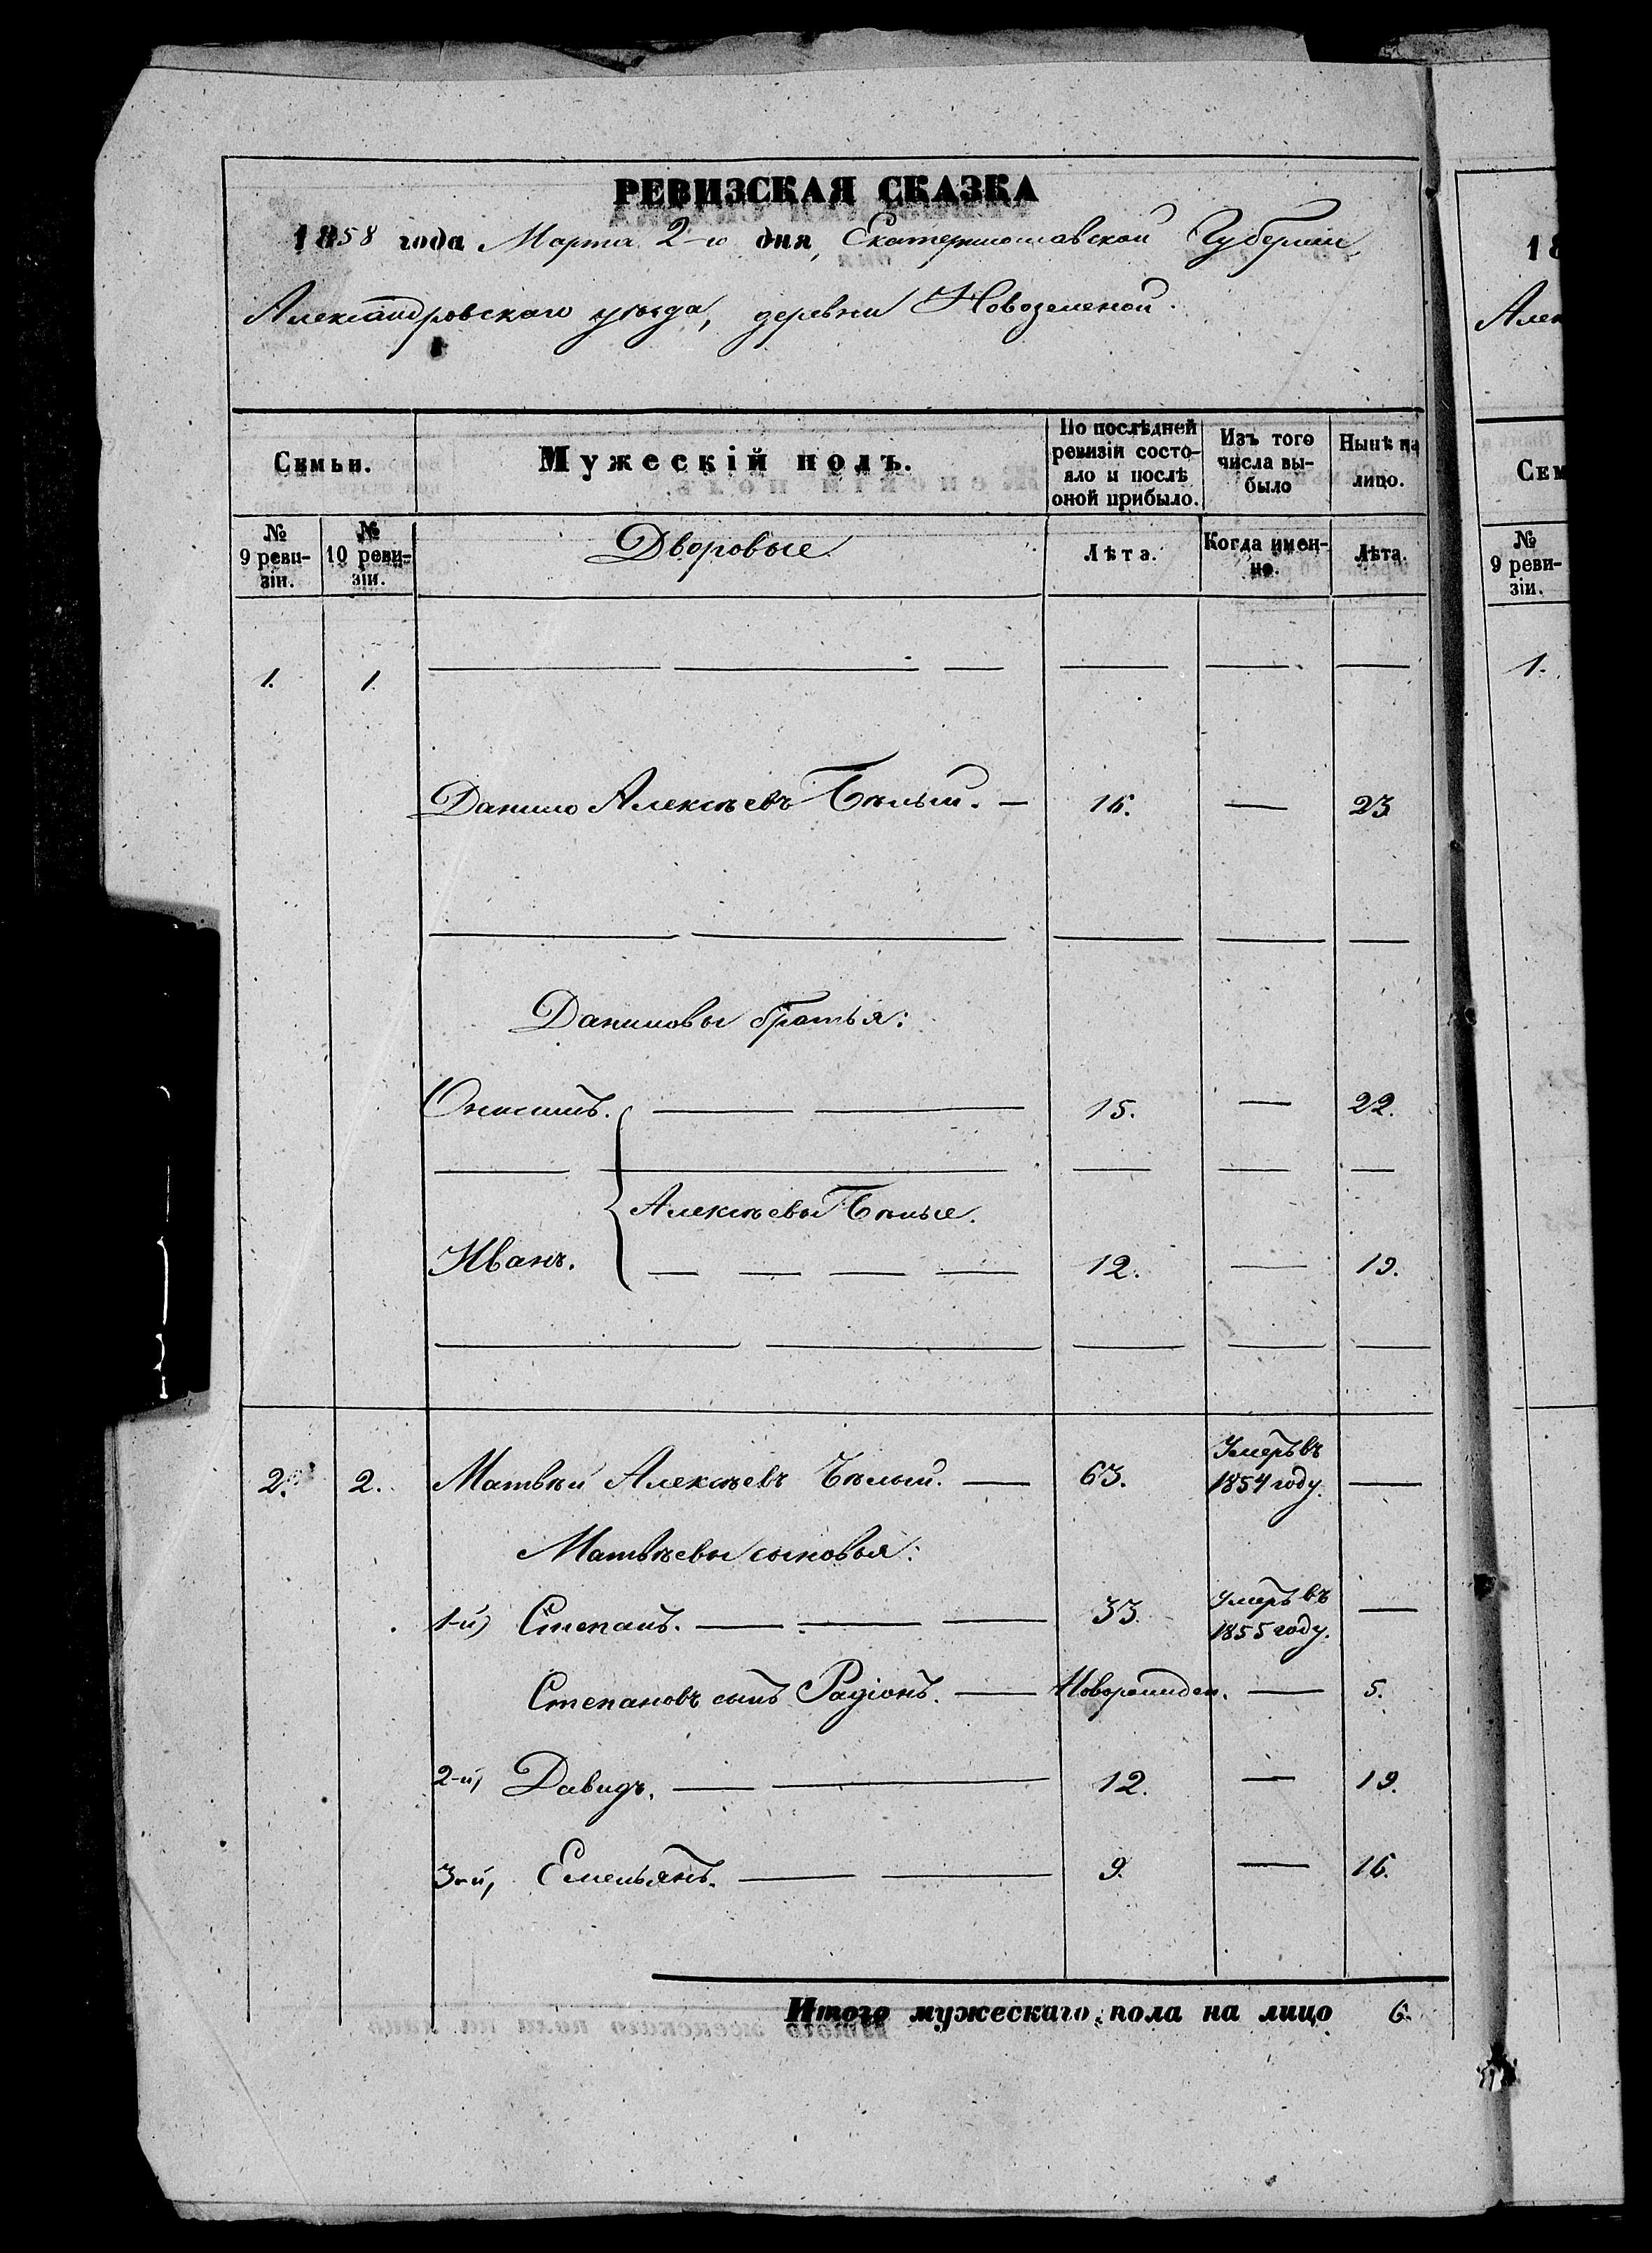 РЕВИЗСКАЯ СКАЗКА
1858 года Марта 2-го дня, Екатеринославской Губерніи,
Александровскаго уѣзда, деревни
Семьи.
Мужескій полъ.
По послѣдней ревизіи состо-
яло и послѣ
оной прибыло.
Изъ того
числа вы-
было
Нынѣ на
лицо.
№
9 реви-
зіи.
№
10 реви-
зіи.
Дворовые
Лѣта.
Когда имен-
но.
Лѣта.
1. 1.
Данило Алексѣевъ Бѣлый. — 16. — 23
Даниловы братья:
15. — 22.
Алексѣевы Бѣлые.
Иванъ. 12. — 19.
2. 2. Матвѣй Алексѣевъ Бѣлый. — 63. Умеръ въ
1854 году. —
Матвѣевы сыновья:
1-й) Степанъ. — 33. Умеръ въ
1855 году. —
Степановъ сынъ Радіонъ. — Новорожден. — 5.
2-й, Давидъ. — 12. — 19.
3-й, Емельянъ. — 9. — 16.
Итого мужескаго пола на лицо 6.
18
Алек
Сем
№
9 реви-
зіи.
1.